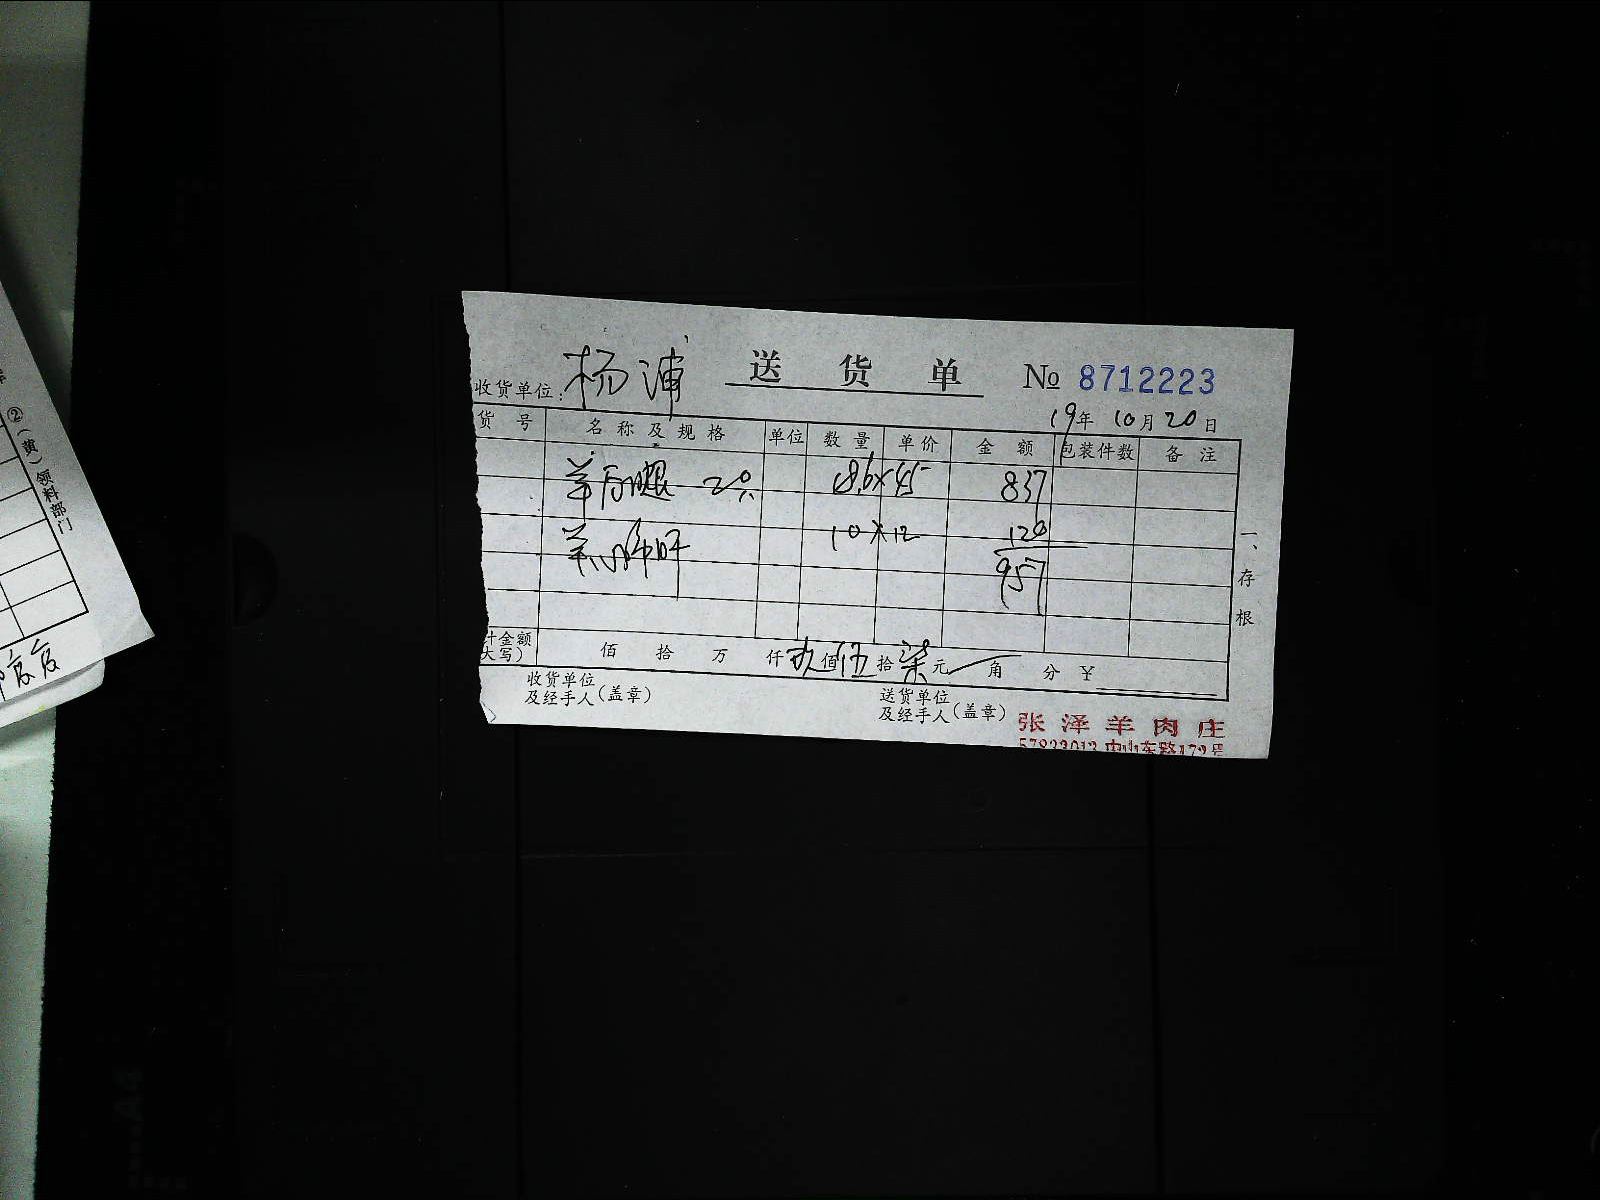 送货单 № 8712223
收货单位: 杨浦
19年 10月 20日
货号 名称及规格 单位 数量 单价 金额 包装件数 备注
羊后腿 2只 18.6×45 837
羊心肺肝 10×12 120
957
计金额
大写) 佰 拾 万 仟 玖佰伍拾柒元 角 分 ¥
收货单位
及经手人(盖章)
送货单位
及经手人(盖章)
张泽羊肉庄
57823013 中山东路172号
一、存根
②(黄)领料部门